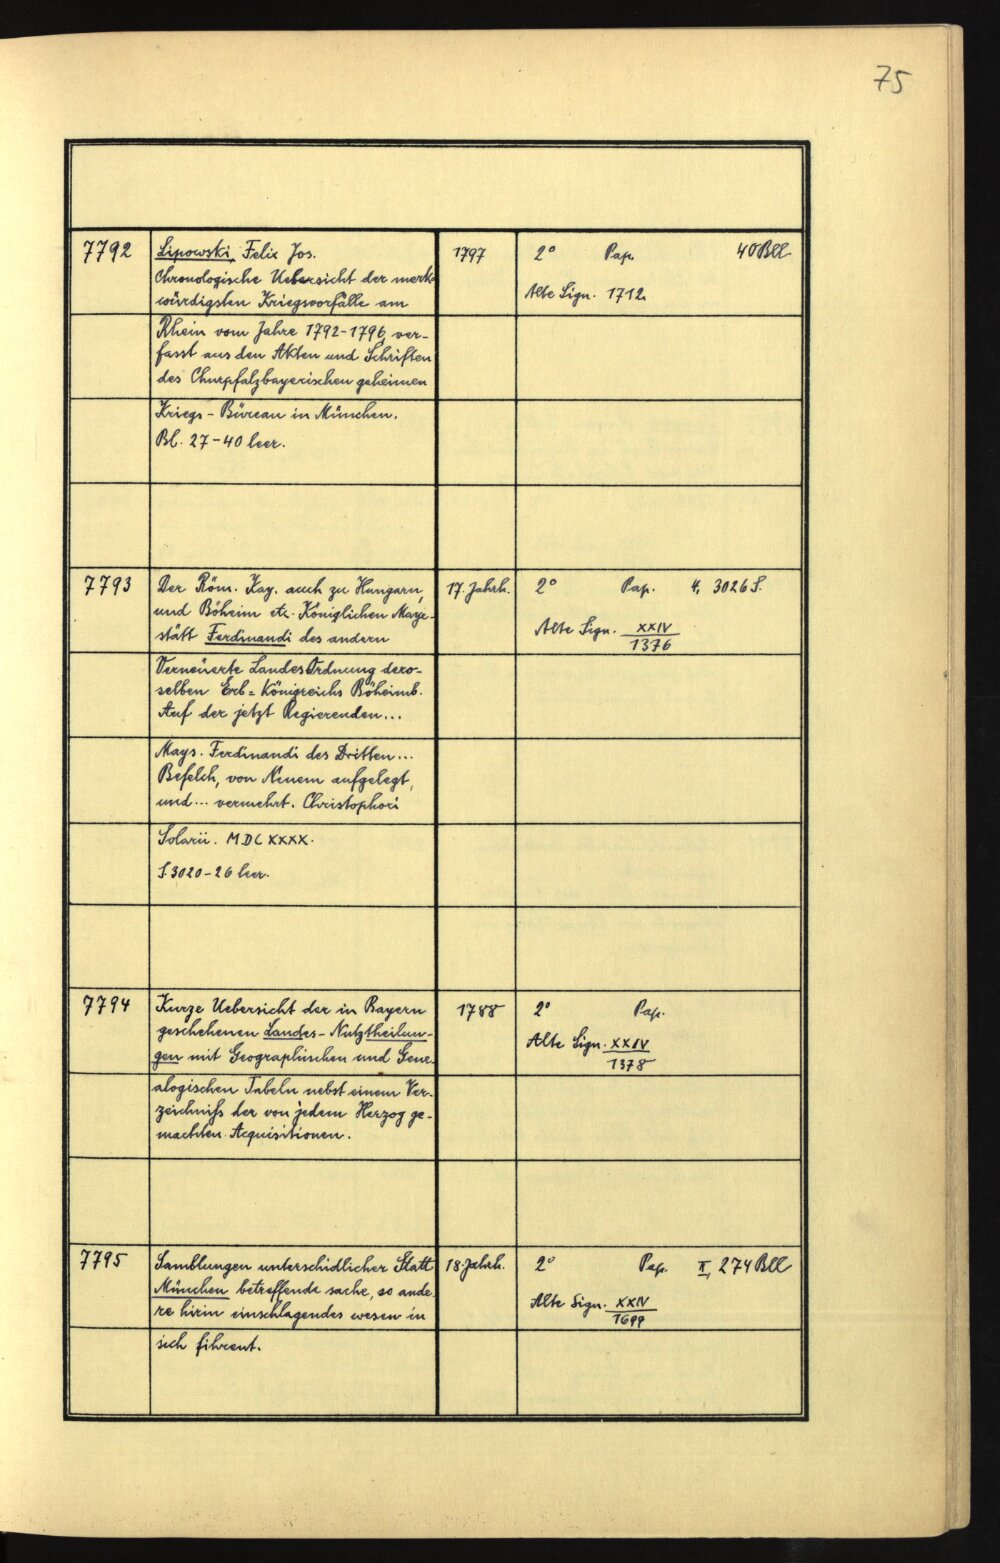 75
7792 Lipowski, Felix Jos. 1797 2° Pap. 40 Bll
Chronologische Uebersicht der merk-
würdigsten Kriegsvorfälle am Alte Sign. 1712.
Rhein vom Jahre 1792-1796, ver-
fasst aus den Akten und Schriften
des Churpfalzbayerischen geheimen
Kriegs-Büreau in München.
Bl. 27-40 leer.
7793 Der Röm. Kay. auch zu Hungarn, 17. Jahrh. 2° Pap. 4, 3026 S.
und Böheim etc. Königlichen Maye-
stätt Ferdinandi des andern Alte Sign. XXIV/1376
Verneüerte LandesOrdnung dero-
selben Erb=Königreichs Böheimb.
Auf der jetzt Regierenden...
Mays. Ferdinandi des Dritten...
Befelch, von Neuem aufgelegt,
und... vermehrt. Christophori
Solarii. MDCXXXX.
S 3020-26 leer.
7794 Kurze Uebersicht der in Bayern 1788 2° Pap.
geschehenen Landes-Nutztheilun-
gen mit Geographischen und Gene- Alte Sign. XXIV/1378
alogischen Tabeln nebst einem Ver-
zeichniß der von jedem Herzog ge-
machten Acquisitionen.
7795 Samblungen unterschidlicher Statt 18. Jahrh. 2° Pap. II, 274 Bll
München betreffende sache, so ande-
re hirin einschlagendes wesen in Alte Sign. XXIV/1699
sich fihrent.